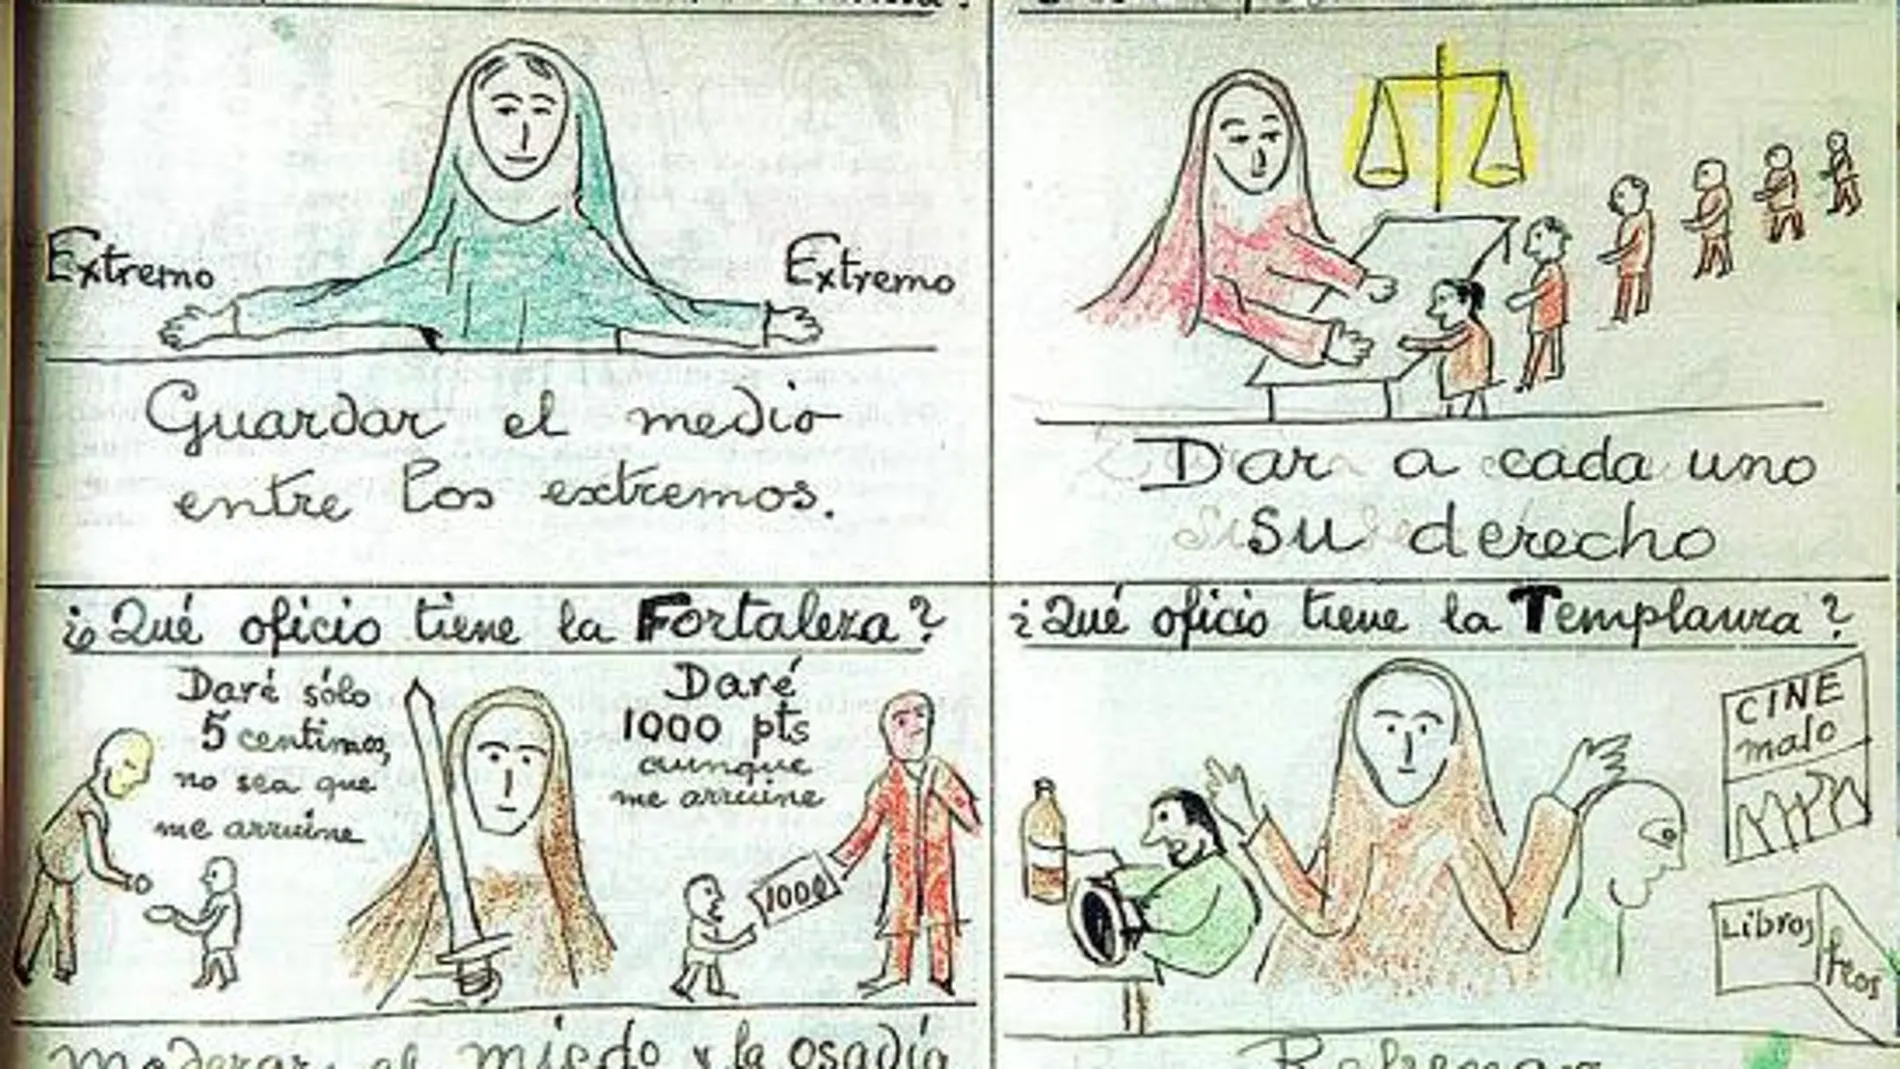 Extremo
Extremo
Guardar el medio
entre los extremos.
Dar a cada uno
su derecho
¿Qué oficio tiene la Fortaleza?
Daré sólo
5 centimos,
no sea que
me arruine
Daré
1000 pts
aunque
me arruine
1000
Moderar el miedo y la osadía
¿Qué oficio tiene la Templanza?
CINE
malo
Libros
feos